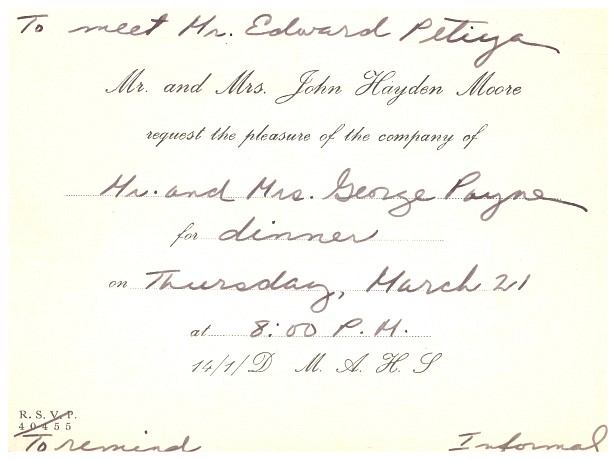 To meet Mr. Edward Petiya
Mr. and Mrs. John Hayden Moore
request the pleasure of the company of
Mr. and Mrs. George Payne
for dinner
on Thursday, March 21
at 8:00 P.M.
14/1/D M. A. H. S
R. S. V. P.
40455
To remind
Informal